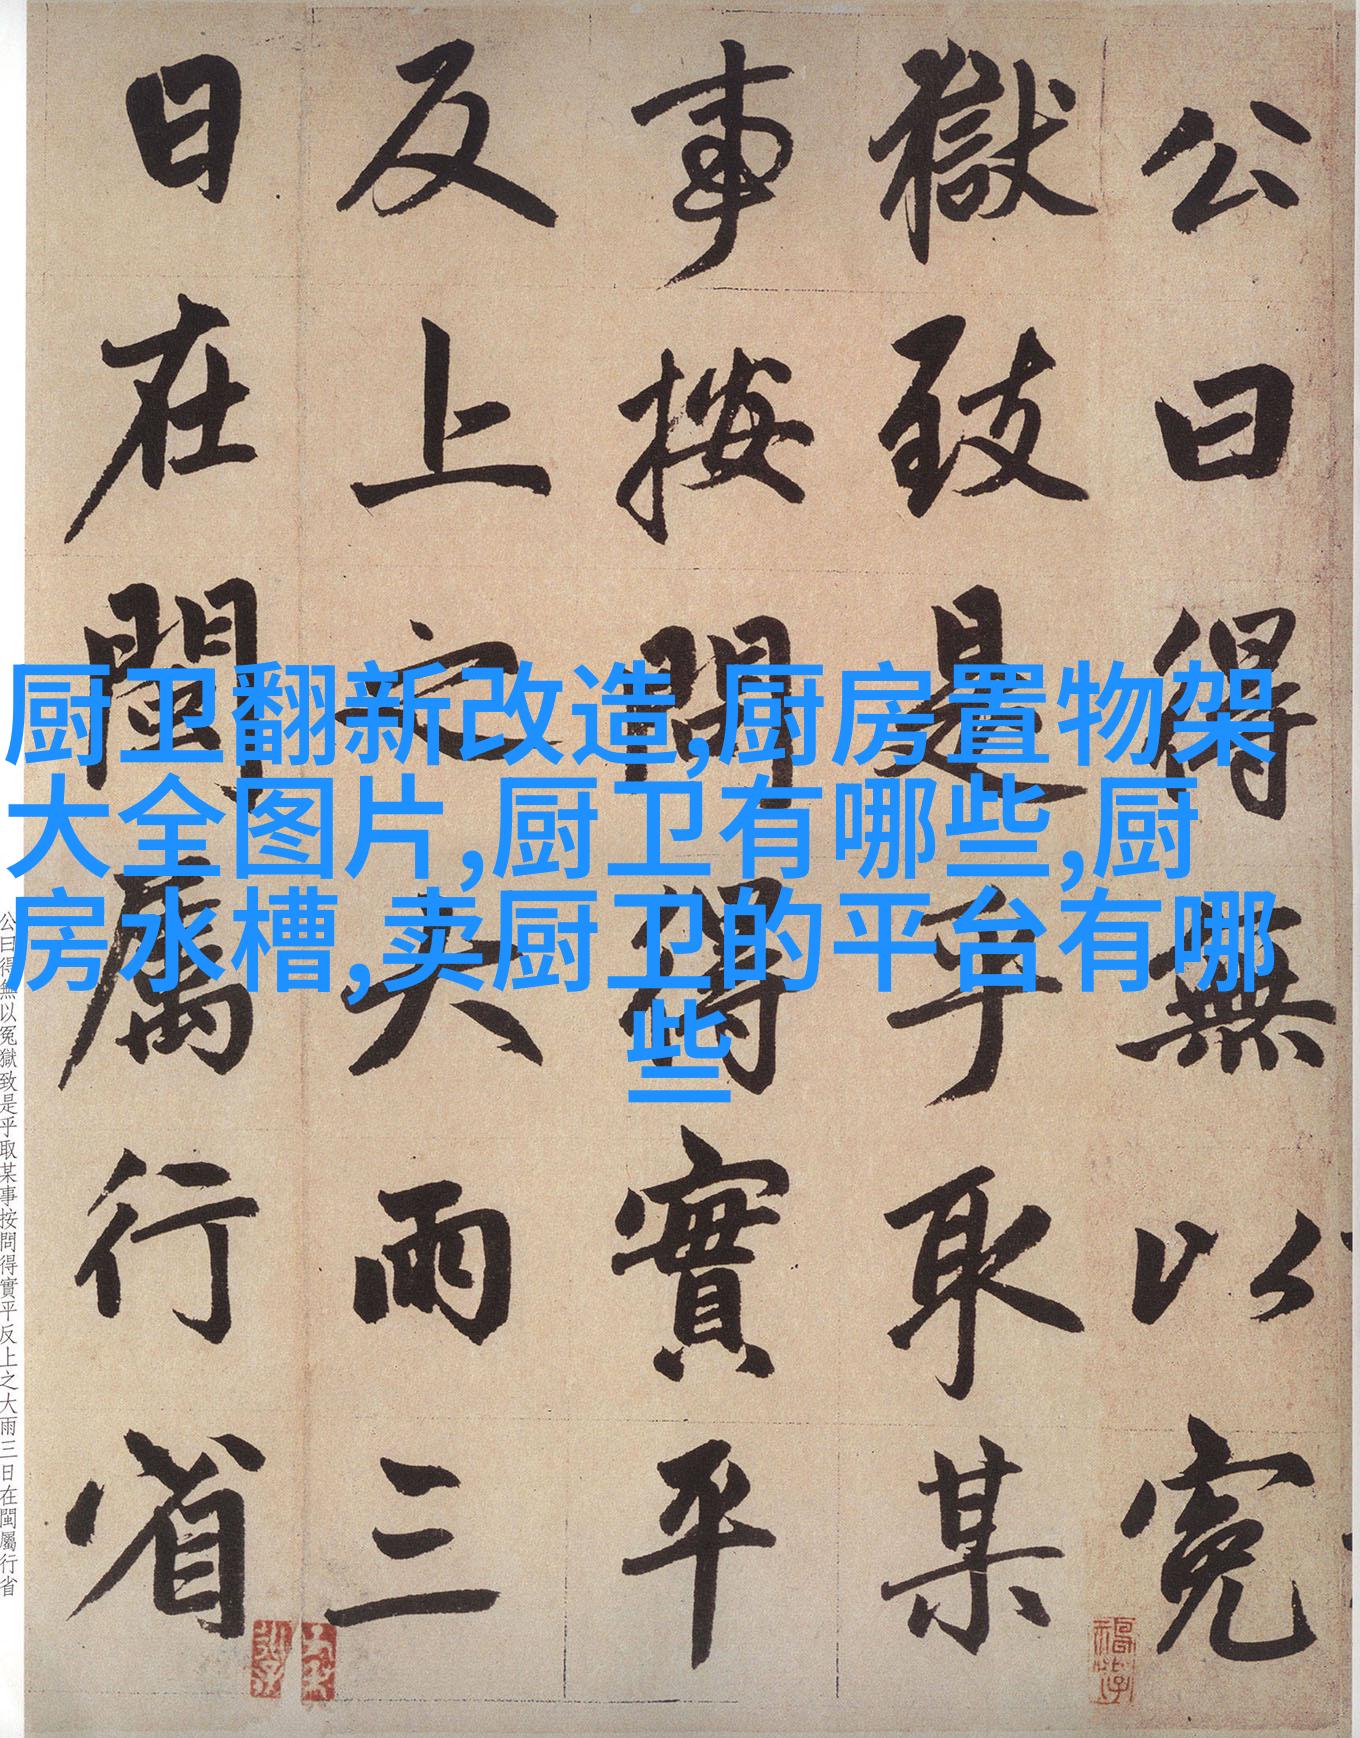 公曰得無以冤
獄致是乎取某
事按問得實平
反上之大雨三
日在閩屬行省
厨卫翻新改造,厨房置物架
大全图片,厨卫有哪些,厨
房水槽,卖厨卫的平台有哪
些
公曰得無以冤獄致是乎取某事按問得實平反上之大雨三日在閩屬行省